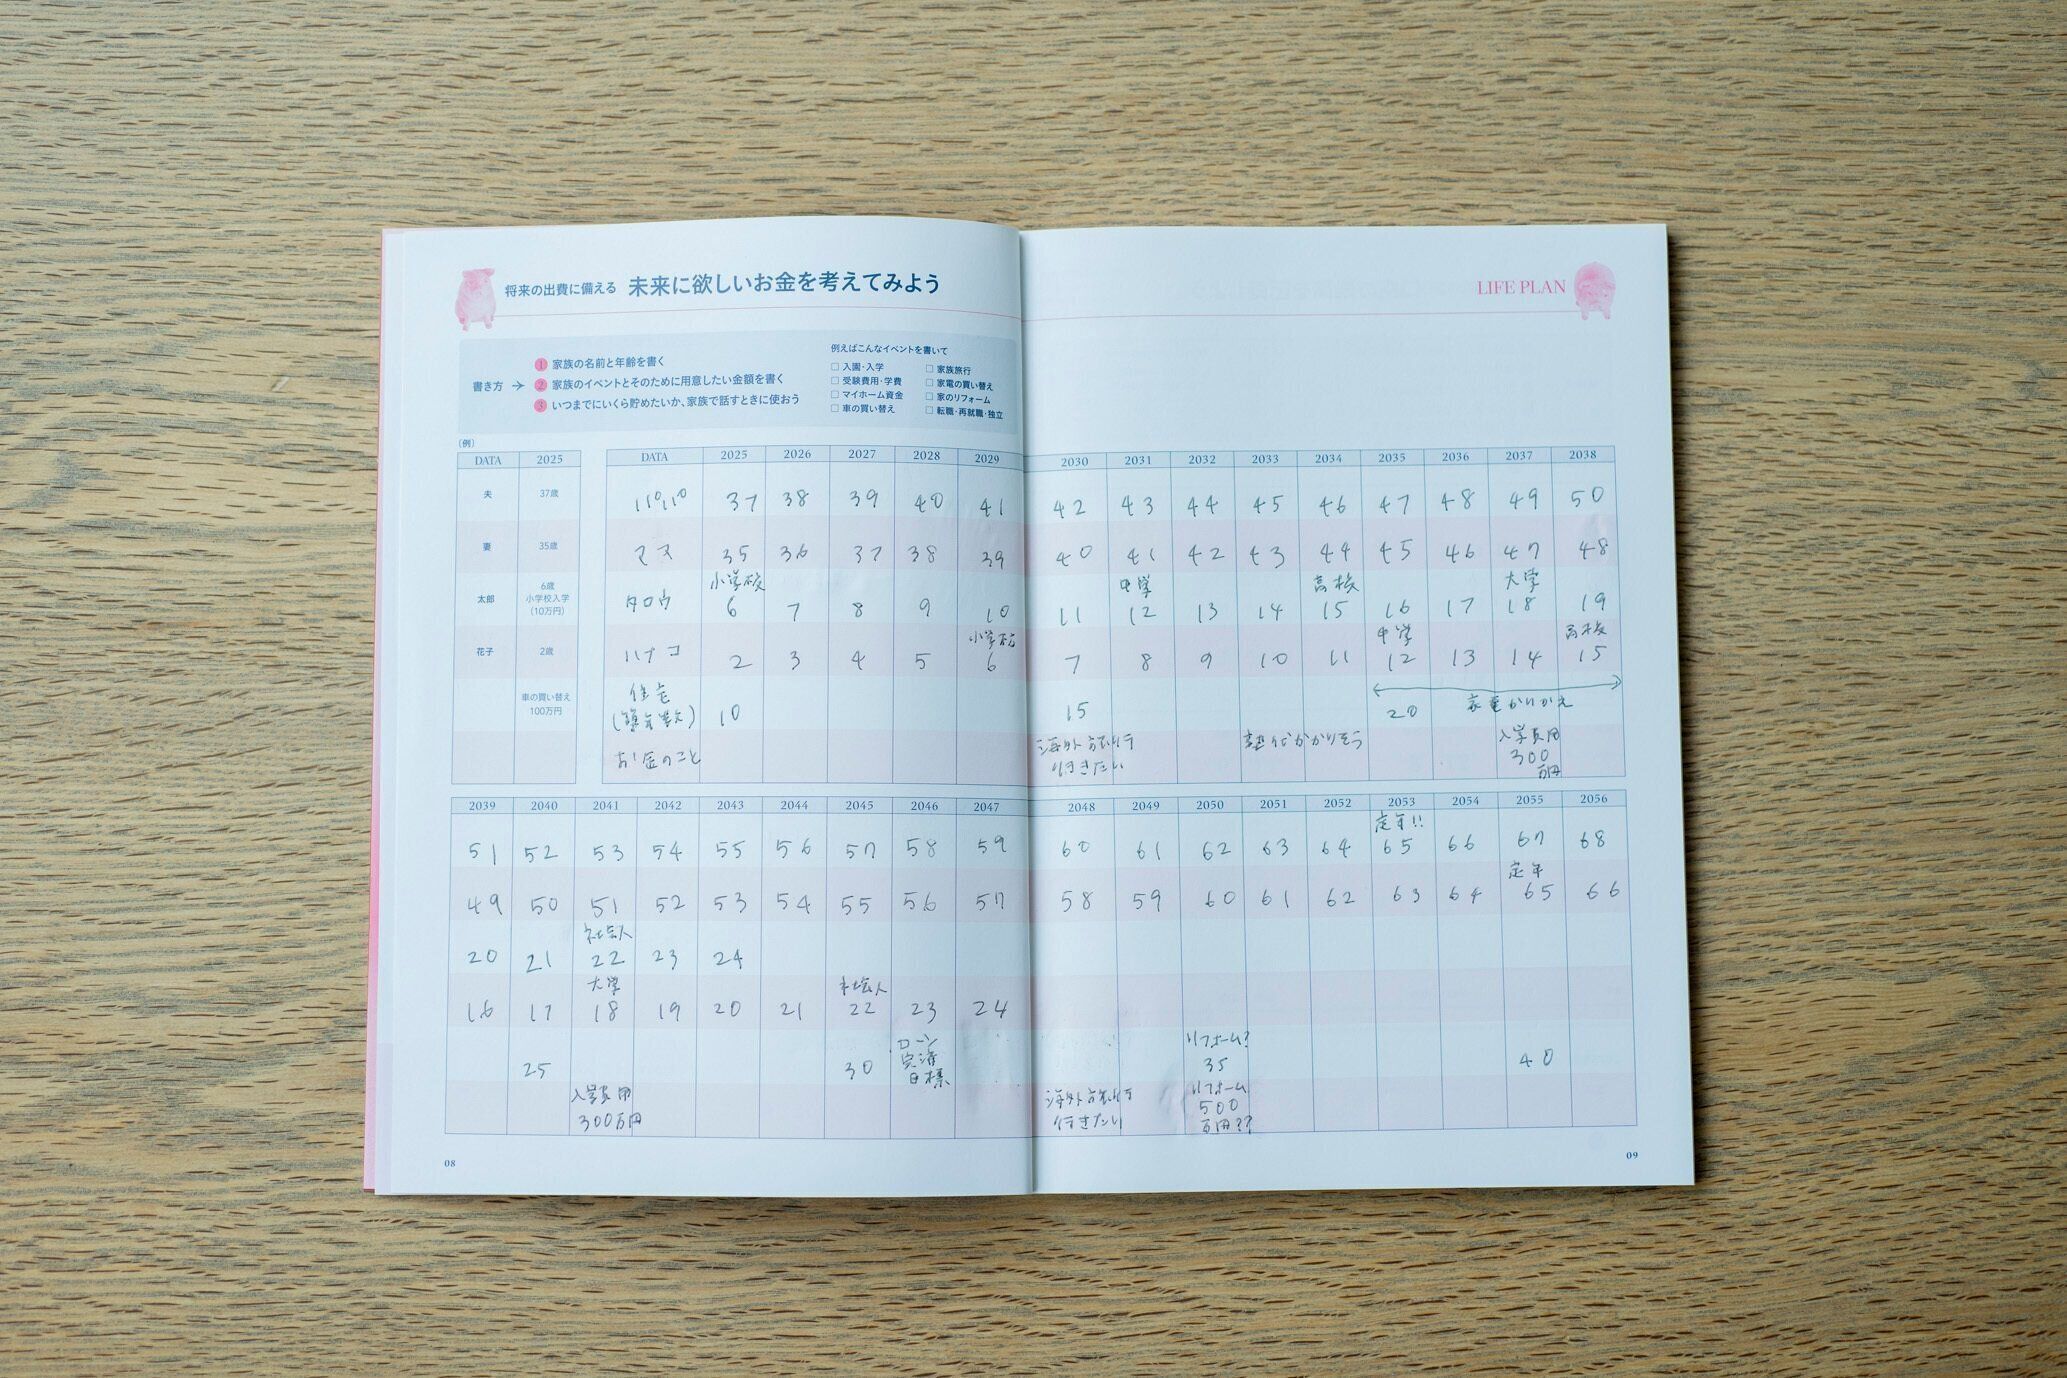 将来の出費に備える 未来に欲しいお金を考えてみよう
LIFE PLAN
書き方 →
1 家族の名前と年齢を書く
2 家族のイベントとそのために用意したい金額を書く
3 いつまでにいくら貯めたいか、家族で話すときに使おう
例えばこんなイベントを書いて
□ 入園・入学 □ 家族旅行
□ 受験費用・学費 □ 家電の買い替え
□ マイホーム資金 □ 家のリフォーム
□ 車の買い替え □ 転職・再就職・独立
(例)
DATA 2025
夫 37歳
妻 35歳
太郎 6歳
小学校入学
(10万円)
花子 2歳
車の買い替え
100万円
DATA 2025 2026 2027 2028 2029 2030 2031 2032 2033 2034 2035 2036 2037 2038
パパ 37 38 39 40 41 42 43 44 45 46 47 48 49 50
ママ 35 36 37 38 39 40 41 42 43 44 45 46 47 48
小学校 中学 高校 大学
タロウ 6 7 8 9 10 11 12 13 14 15 16 17 18 19
小学校 中学 高校
ハナコ 2 3 4 5 6 7 8 9 10 11 12 13 14 15
住宅
(築年数) 10 15 20 家電かいかえ
お金のこと
海外旅行
行きたい
塾代かかりそう
入学費用
300
万円
2039 2040 2041 2042 2043 2044 2045 2046 2047 2048 2049 2050 2051 2052 2053 2054 2055 2056
定年!!
51 52 53 54 55 56 57 58 59 60 61 62 63 64 65 66 67 68
定年
49 50 51 52 53 54 55 56 57 58 59 60 61 62 63 64 65 66
社会人
20 21 22 23 24
大学 社会人
16 17 18 19 20 21 22 23 24
25 30
ローン
完済
目標
リフォーム?
35
40
入学費用
300万円
海外旅行
行きたい
リフォーム
500
万円??
08
09